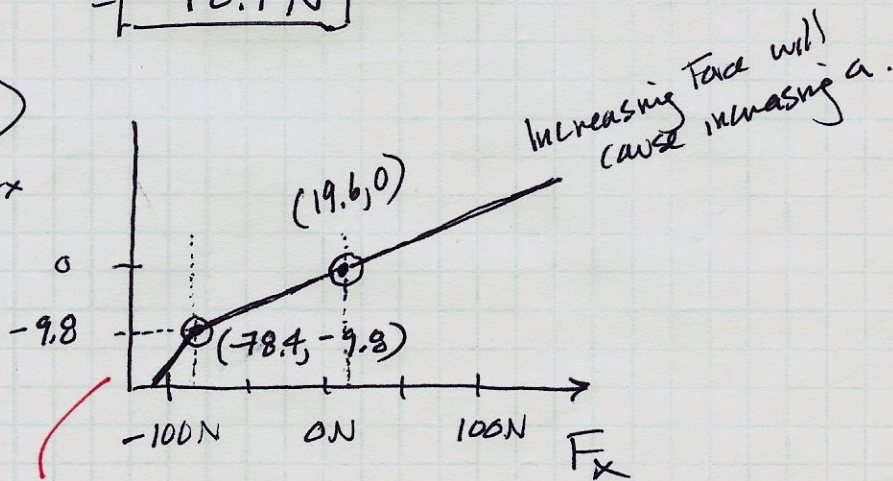 Increasing Force will
cause increasing a.
x
(19.6, 0)
0
-9.8
(-78.4, -9.8)
-100N 0N 100N
Fx